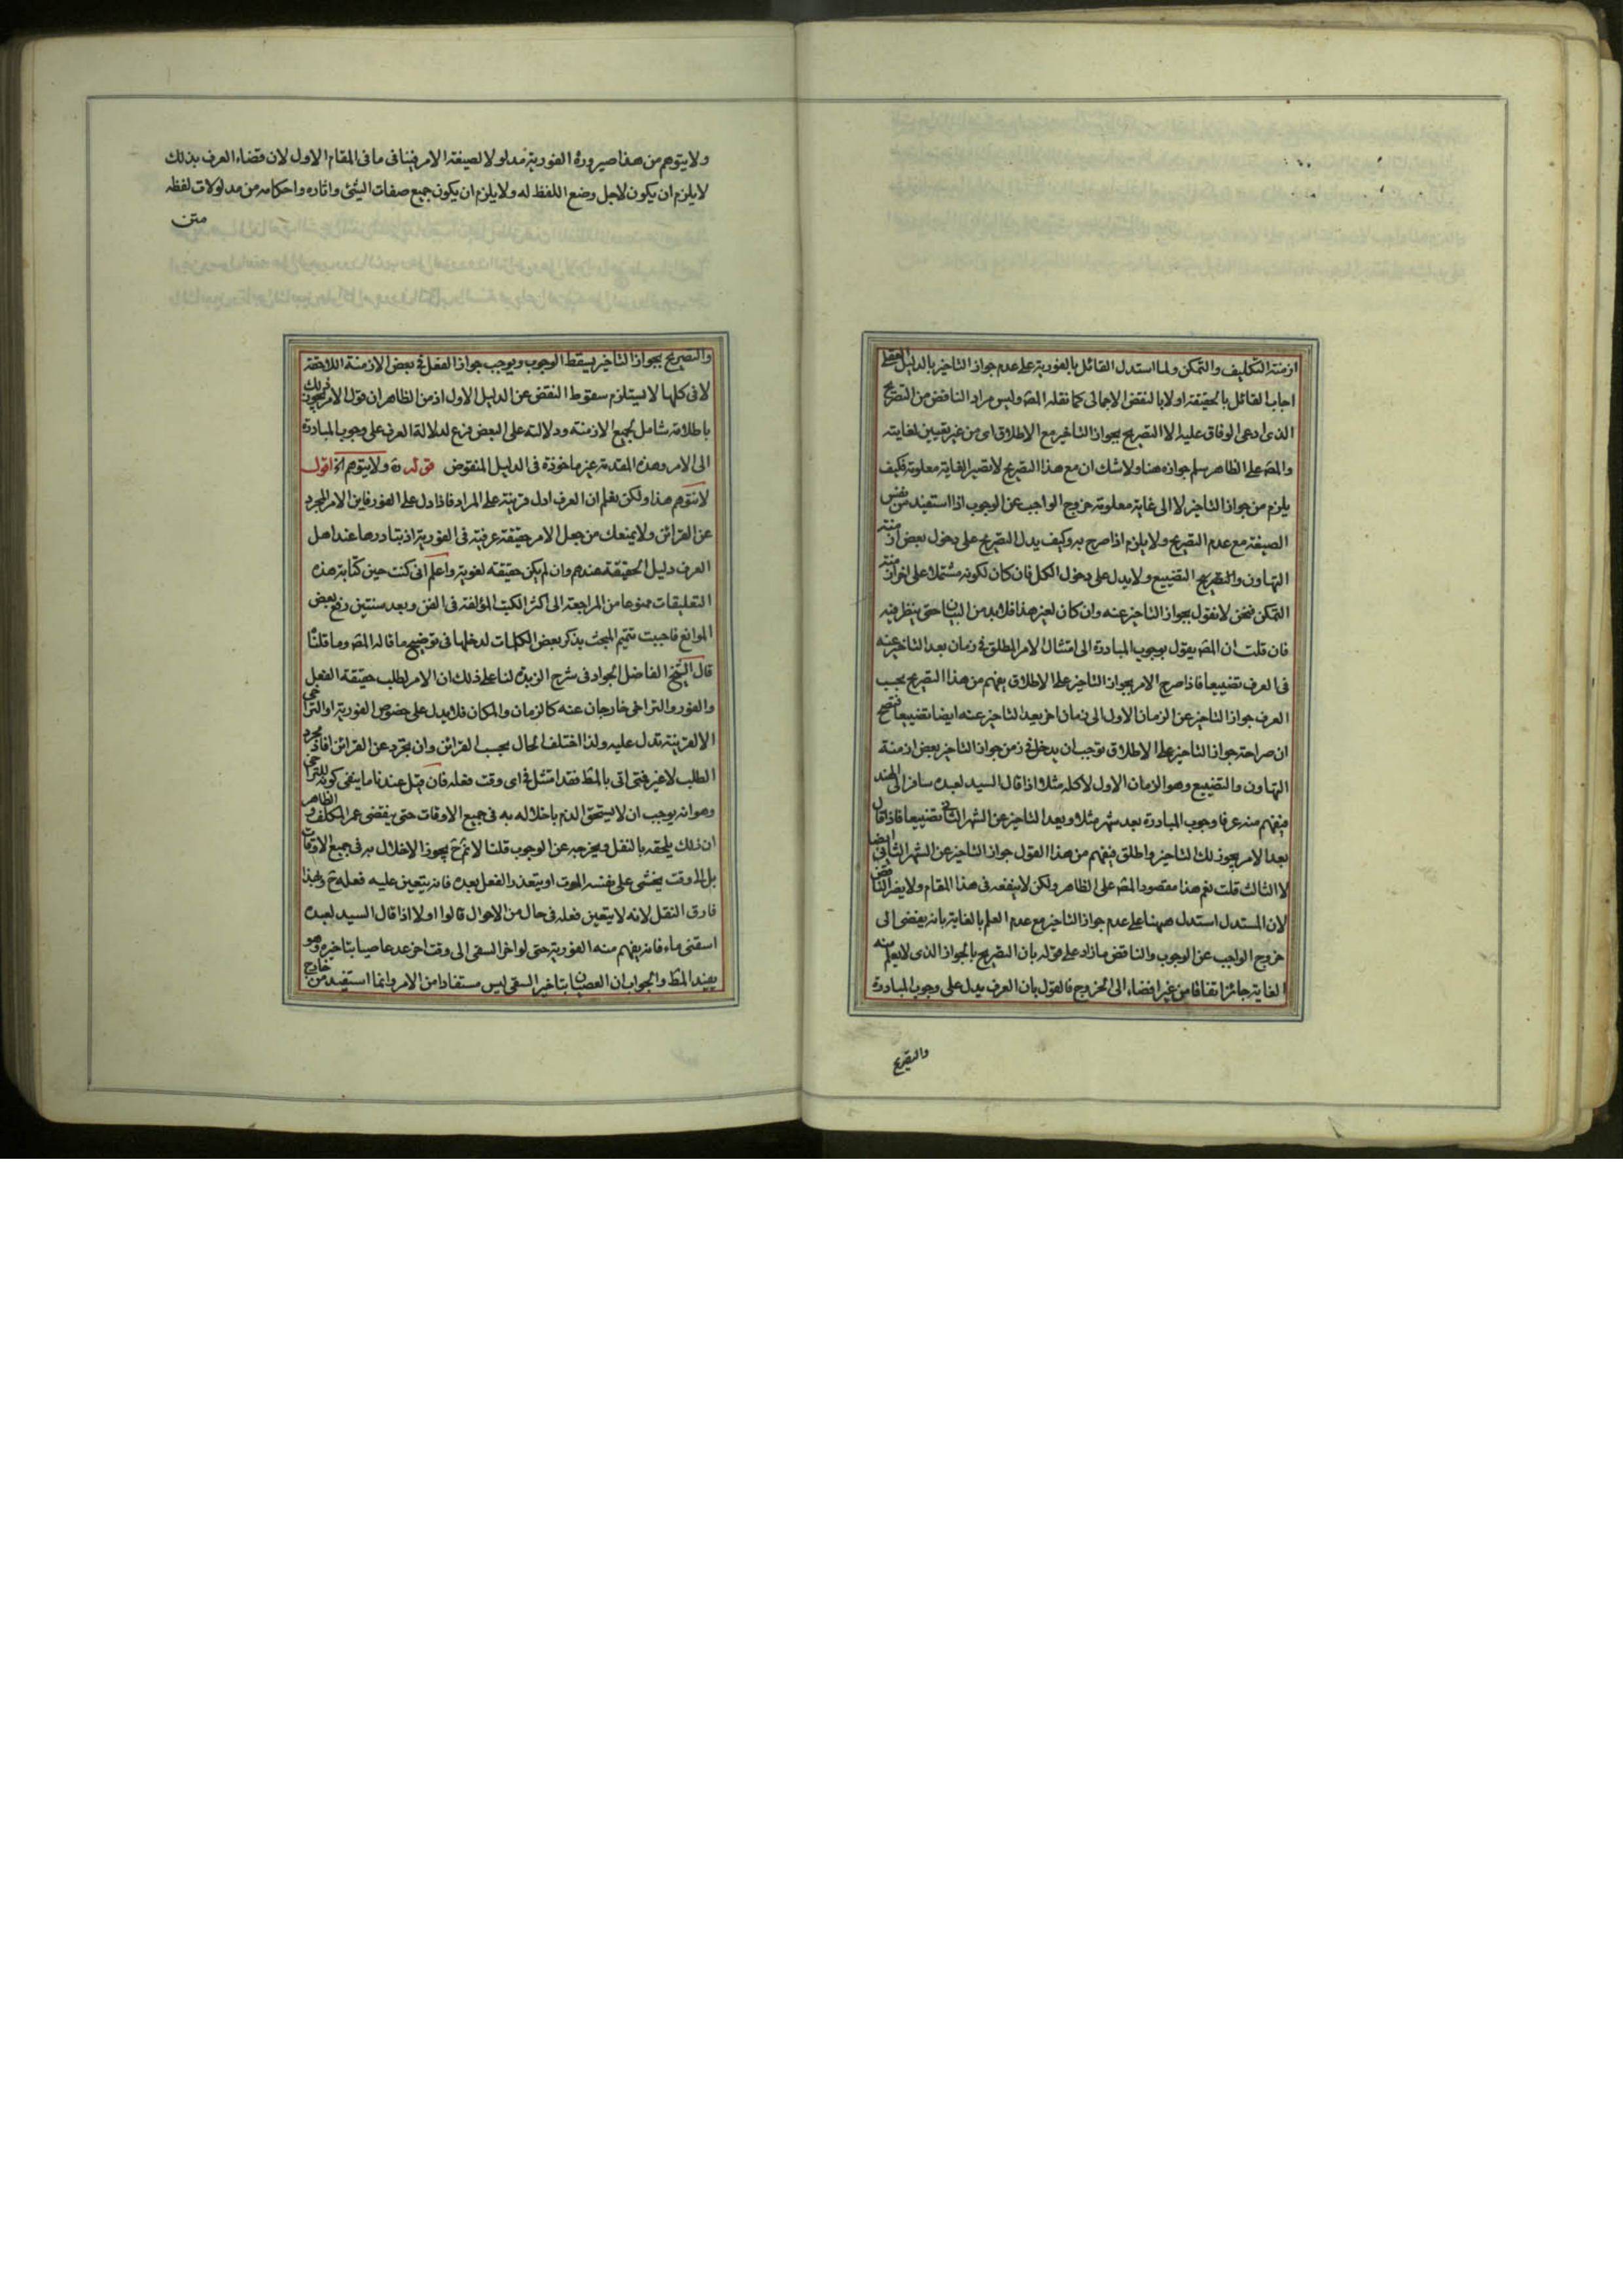 ازمنة التكليف والتمكن ولما استدل القائل بالفورية على عدم جواز التاخير بالدليل العقلى
اجاب القائل بالحقيقة اولا بالنقض الاجمالى كما نقله المصَ وليس مراد الناقض من التصريح
الذى ادعى الوفاق عليه الا التصريح بجواز التاخير مع الاطلاق اى من غير تعيين لغايته
والمصَ على الظاهر سلم جوازه هنا ولا شك ان مع هذا التصريح لا تصير الغاية معلومة فكيف
يلزم من جواز التاخير لا الى غاية معلومة خروج الواجب عن الوجوب اذا استفيد من نفس
الصيغة مع عدم التصريح ولا يلزم اذا صرح به وكيف يدل التصريح على دخول بعض ازمنة
التهاون والتضييع ولا يدل على دخول الكل فان كان لكونه مشتملا على
التمكن فنحن لا نقول بجواز التاخير عنه وان كان لغير هذا فلابد من البيان حتى ينظر فيه
فان قلت ان المصَ يقول بوجوب المبادرة الى امتثال الامر المطلق فى زمان بعد التاخير عنه
فى العرف تضييعا فاذا صرح الامر بجواز التاخير على الاطلاق يفهم من هذا التصريح بحسب
العرف جواز التاخير عن الزمان الاول الى زمان اخر يعد التاخير عنه ايضا تضييعا فتصح
ان صراحة جواز التاخير على الاطلاق توجب ان يدخل فى زمن جواز التاخير بعض ازمنة
التهاون والتضييع وهو الزمان الاول لا كله مثلا اذا قال السيد لعبده سافر الى الهند
فيفهم منه عرفا وجوب المبادرة بعد شهر مثلا ويعد التاخير عن الشهر الثانى تضييعا فاذا قال
بعد الامر يجوز لك التاخير واطلق فيفهم من هذا القول جواز التاخير عن الشهر الثانى ايضا
لا الثالث قلت نعم هذا مقصود المصَ على الظاهر ولكن لا ينفعه فى هذا المقام ولا يضر الناقض
لان المستدل استدل ههنا على عدم جواز التاخير مع عدم العلم بالغاية بانه يفضى الى
خروج الواجب عن الوجوب والناقض ما زاد على قوله بان التصريح بالجواز الذى لا يعلم منه
الغاية جائز اتفاقا من غير افضاء الى الخروج فالقول بان العرف يدل على وجوب المبادرة
والتصريح
ولا يتوهم من هذا صيرورة الفورية مدلولا لصيغة الامر فينافى ما فى المقام الاول لان قضاء العرف بذلك
لا يلزم ان يكون لاجل وضع اللفظ له ولا يلزم ان يكون جميع صفات الشئ واثاره واحكامه من مدلولات لفظه
متن
والتصريح بجواز التاخير يسقط الوجوب ويوجب جواز الفعل فى بعض الازمنة اللاحقة
لا فى كلها لا يستلزم سقوط النقض عن الدليل الاول اذ من الظاهر ان قول الامر يجوز لك
باطلاقه شامل لجميع الازمنة ودلالته على البعض فرع لدلالة العرف على وجوب المبادرة
الى الامر وهذه المقدمة غير ماخوذة فى الدليل المنقوض قوله ره ولا يتوهم الخ اقول
لا نتوهم هذا ولكن نعلم ان العرف ادل قرينة على المراد فاذا دل على الفور فاين الامر المجرد
عن القرائن ولا يمنعك من جعل الامر حقيقة عرفية فى الفورية اذ تبادرها عند اهل
العرف دليل الحقيقة عندهم وان لم يكن حقيقة لغوية واعلم انى كنت حين كتابة هذه
التعليقات ممنوعا من المراجعة الى اكثر الكتب المؤلفة فى الفن وبعد سنتين رفع بعض
الموانع فاحببت تتميم المبحث بذكر بعض الكلمات لدخلها فى توضيح ما قاله المصَ وما قلنا
قال الشيخ الفاضل الجواد فى شرح الزبدة لنا على ذلك ان الامر لطلب حقيقة الفعل
والفور والتراخى خارجان عنه كالزمان والمكان فلا يدل على خصوص الفورية او التراخى
الا لقرينة تدل عليه ولذا اختلف الحال بحسب القرائن وان تجرد عن القرائن افاد مجرد
الطلب لا غير فمتى اتى بالمطَ فقد امتثل فى اى وقت فعله فان قيل عندنا ما ينفى كونه للتراخى
وهو انه يوجب ان لا يستحق الذم باخلاله به فى جميع الاوقات حتى ينقضى عمر المكلف والظاهر
ان ذلك يلحقه بالنفل ويخرجه عن الوجوب قلنا لا نمَ حَ يجوز الاخلال به فى جميع الاوقات
بل الى وقت يخشى على نفسه الموت او يتعذر الفعل بعده فانه يتعين عليه فعله حَ ولهذا
فارق النفل لانه لا يتعين فعله فى حال من الاحوال قالوا اولا اذا قال السيد لعبده
اسقنى ماء فانه يفهم منه الفورية حتى لو اخر السقى الى وقت اخر عد عاصيا بتاخيره وهو
يفيد المطَ والجواب ان العصيان بتاخير السقى ليس مستفادا من الامر وانما استفيد من خارج